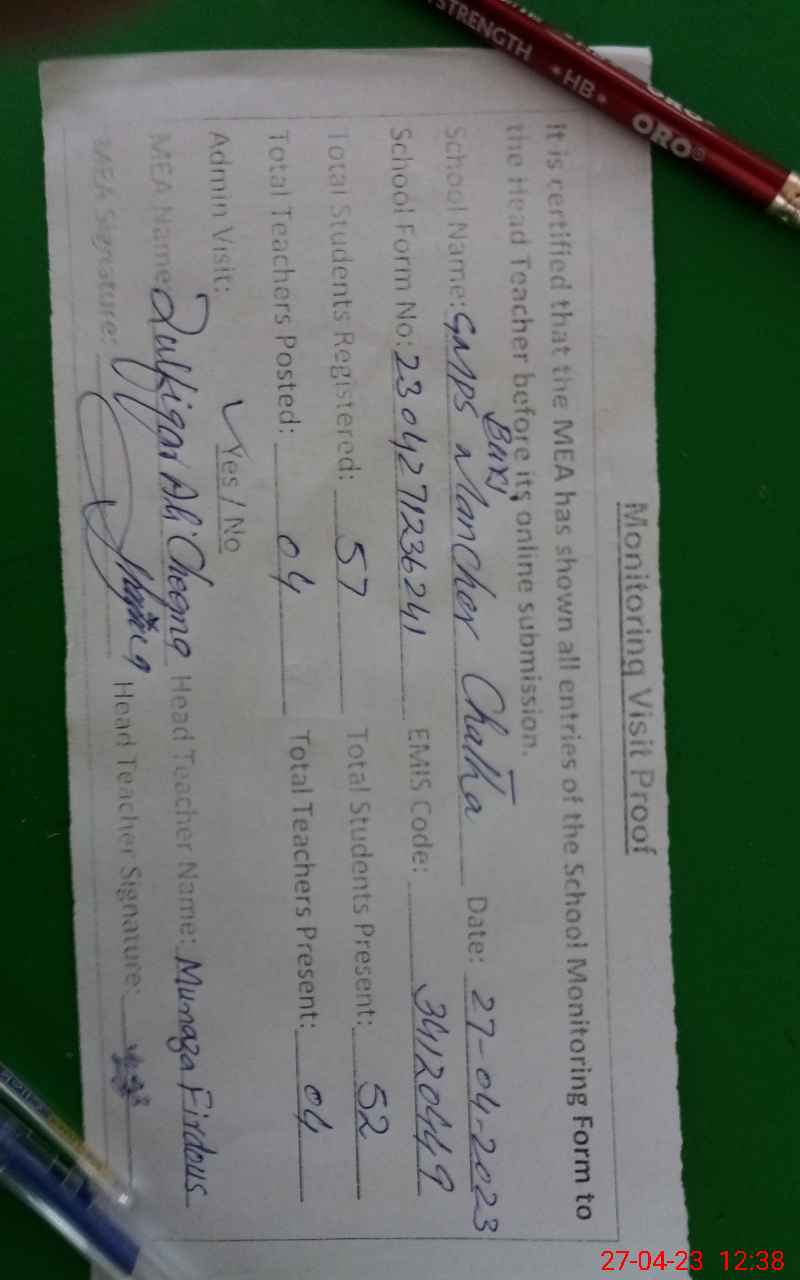 STRENGTH • HB • ORO
Monitoring Visit Proof
It is certified that the MEA has shown all entries of the School Monitoring Form to
the Head Teacher before its online submission.
Burj
School Name: GMPS Mancher Chatha Date: 27-04-2023
School Form No: 2304271236241 EMIS Code: 34120449
Total Students Registered: 57 Total Students Present: 52
Total Teachers Posted: 04 Total Teachers Present: 04
Admin Visit: Yes / No
MEA Name: Zulfiqar Ali Cheema Head Teacher Name: Munaza Firdous
MEA Signature: Head Teacher Signature:
27-04-23 12:38